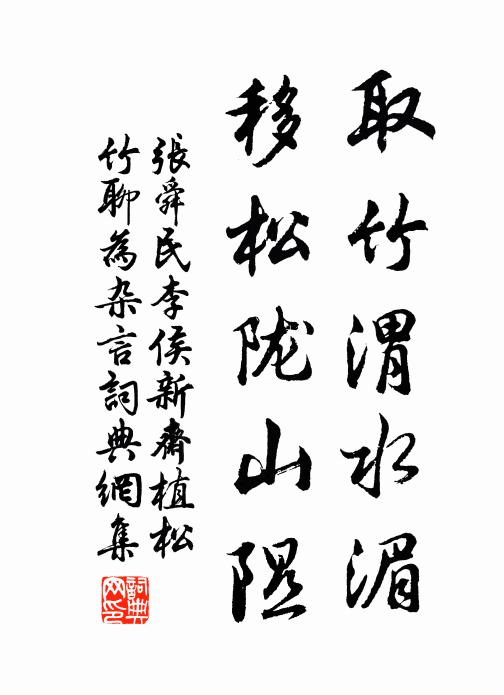 取竹渭水湄
移松陇山隈
張舜民李侯新齋植松
竹聊為杂言詞典網集
詞典网印